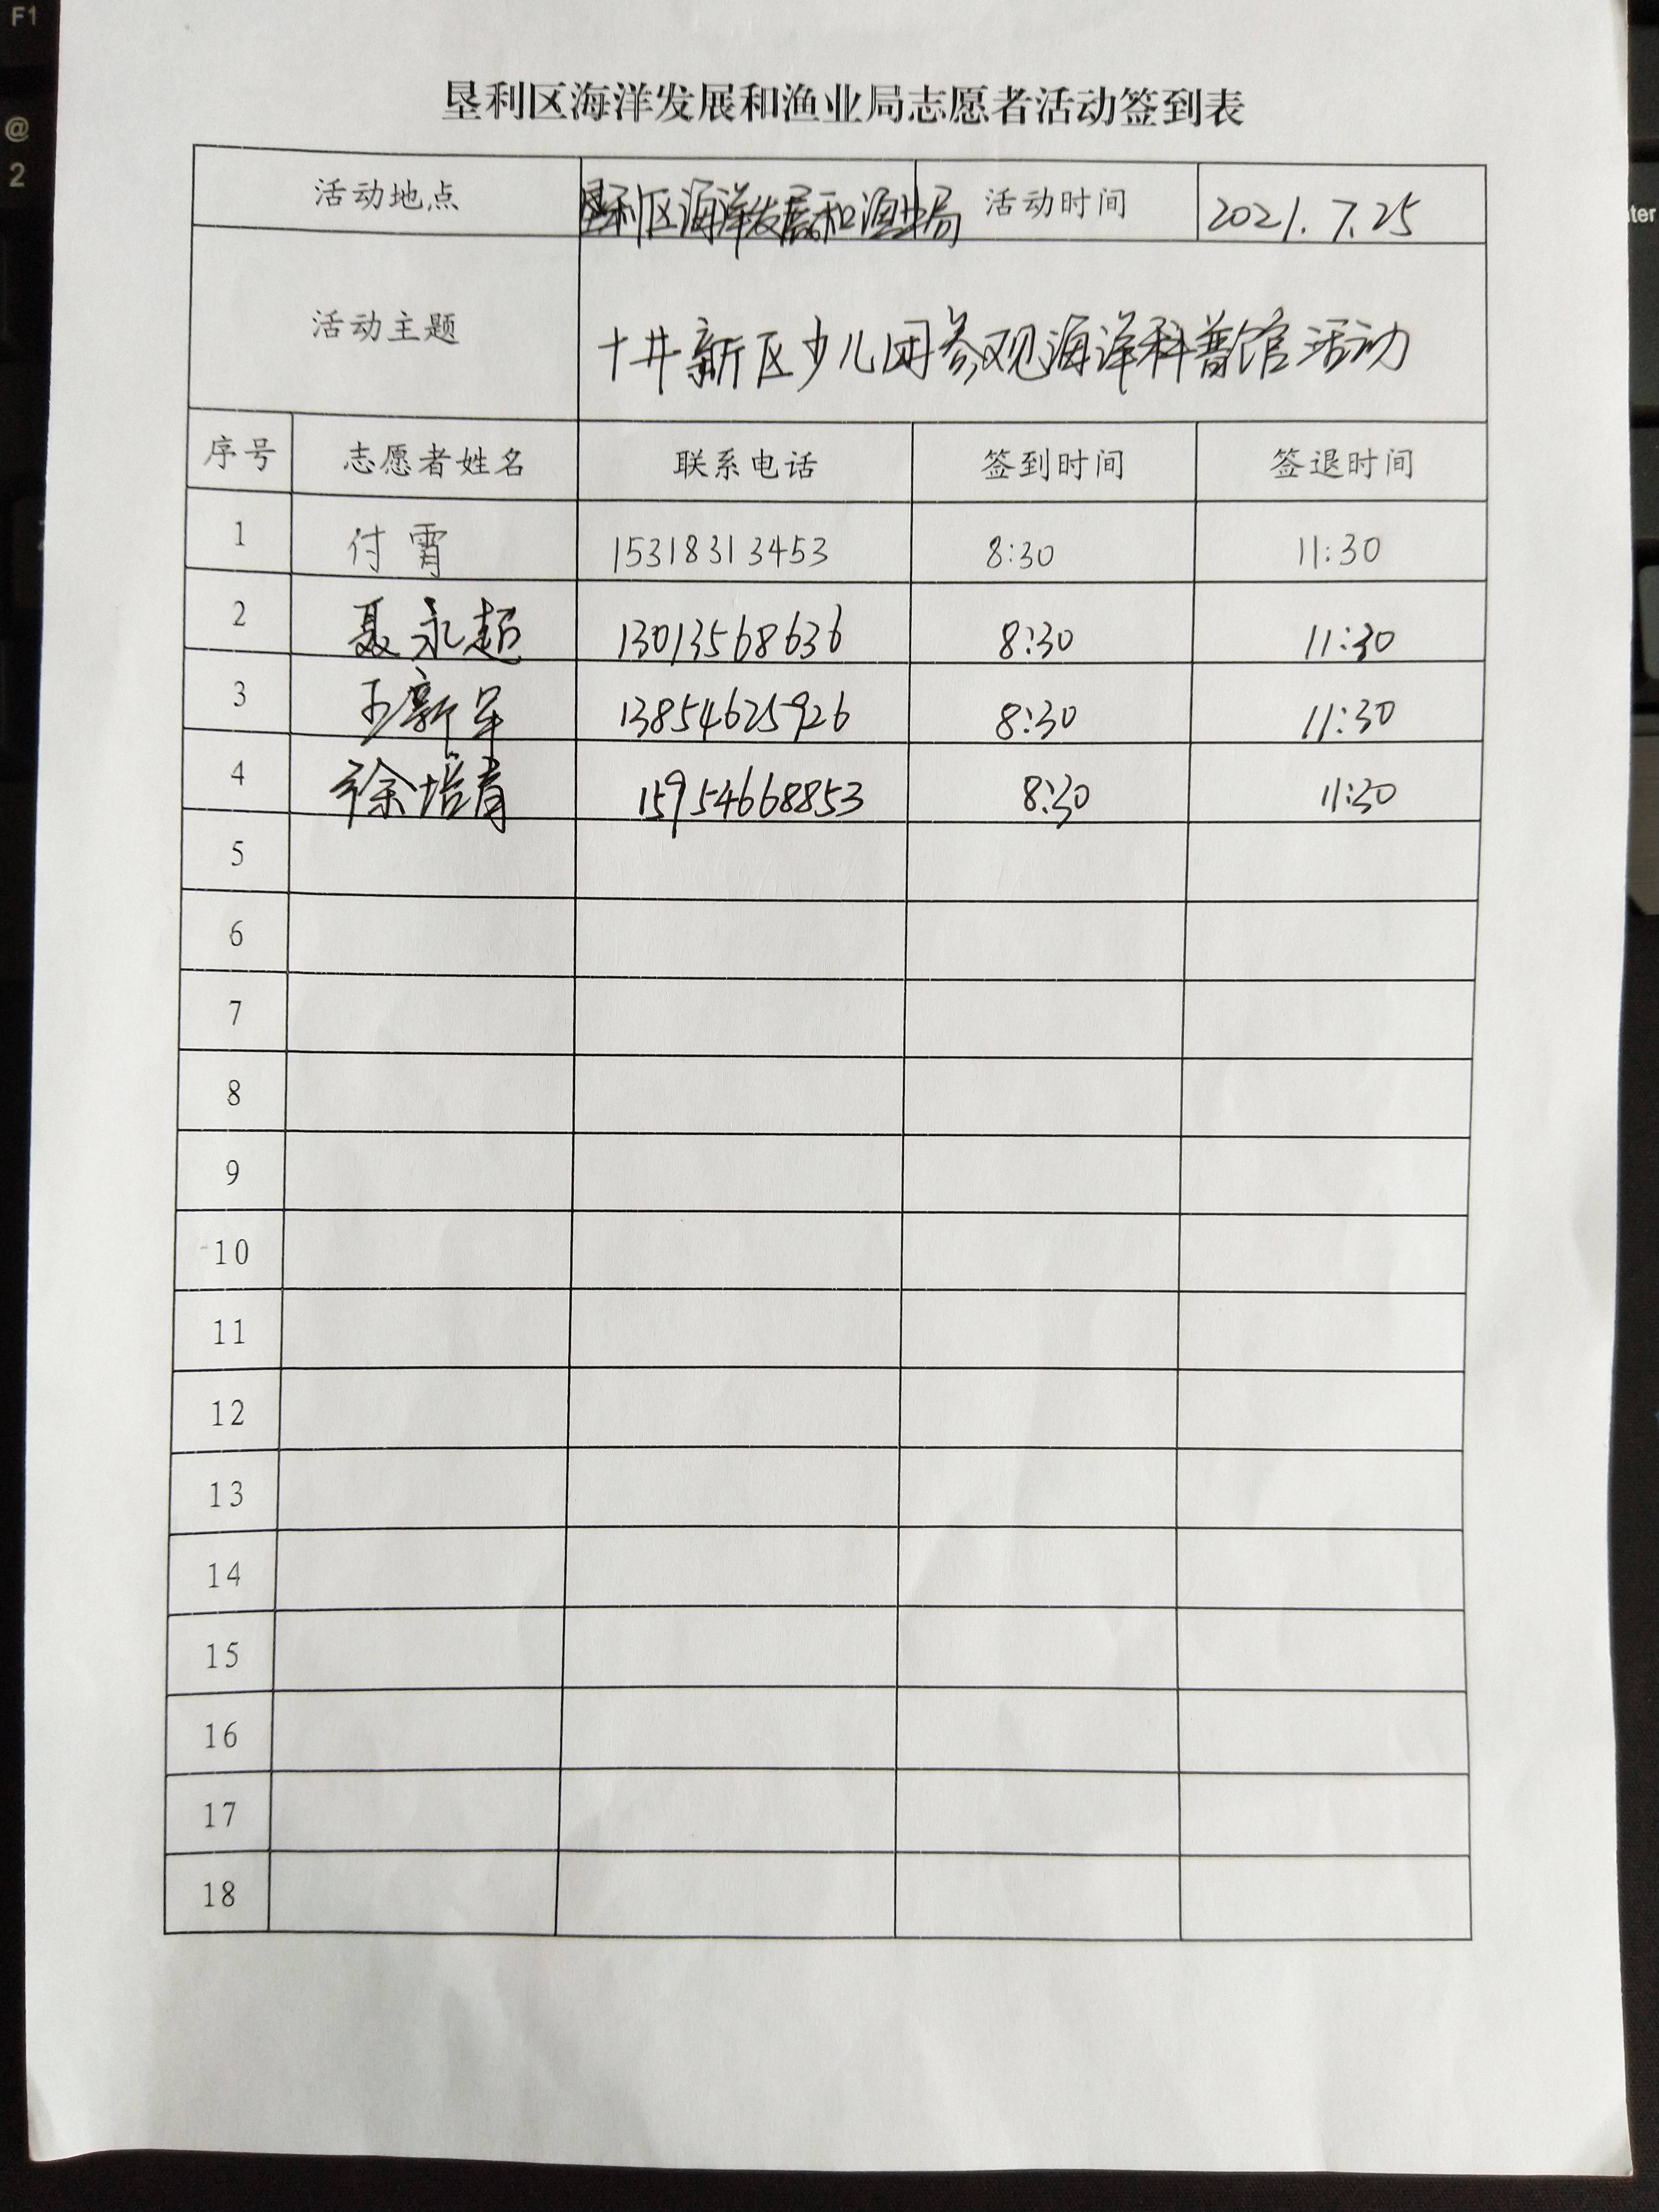 F1
@
2
ter
垦利区海洋发展和渔业局志愿者活动签到表
活动地点 垦利区海洋发展和渔业局 活动时间 2021.7.25
活动主题 十井新区少儿团参观海洋科普馆活动
序号 志愿者姓名 联系电话 签到时间 签退时间
1 付霄 15318313453 8:30 11:30
2 聂永超 13013568636 8:30 11:30
3 王新军 13854625926 8:30 11:30
4 徐培青 15954668853 8:30 11:30
5
6
7
8
9
10
11
12
13
14
15
16
17
18